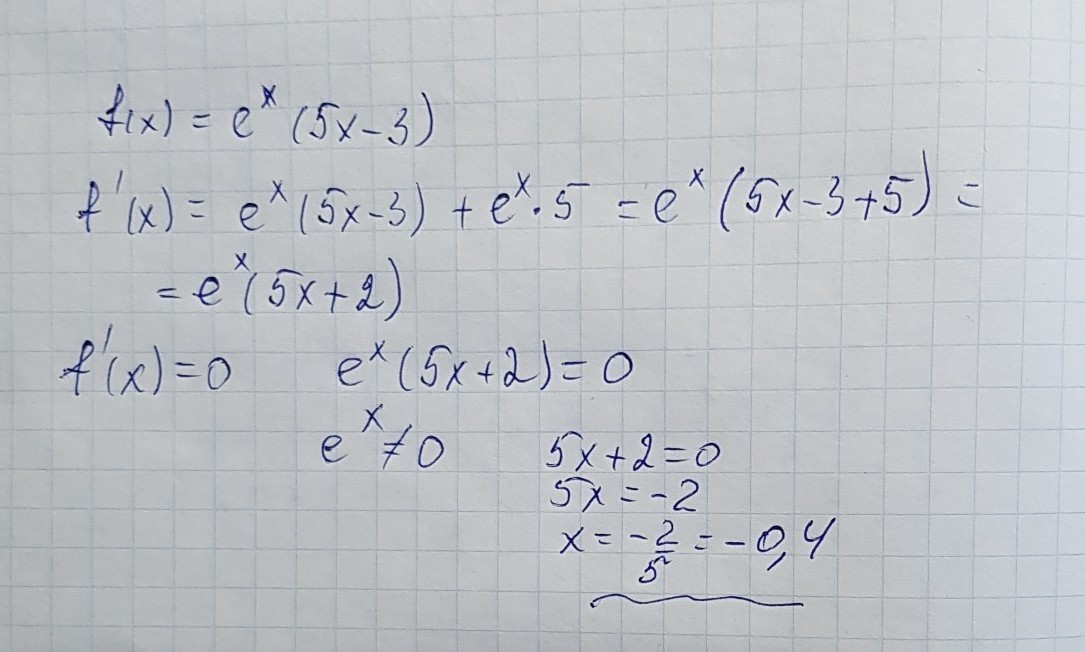 f(x) = e^x (5x-3)
f'(x) = e^x (5x-3) + e^x · 5 = e^x (5x-3+5) =
= e^x (5x+2)
f'(x) = 0 e^x (5x+2) = 0
e^x ≠ 0 5x+2=0
5x = -2
x = -2/5 = -0,4